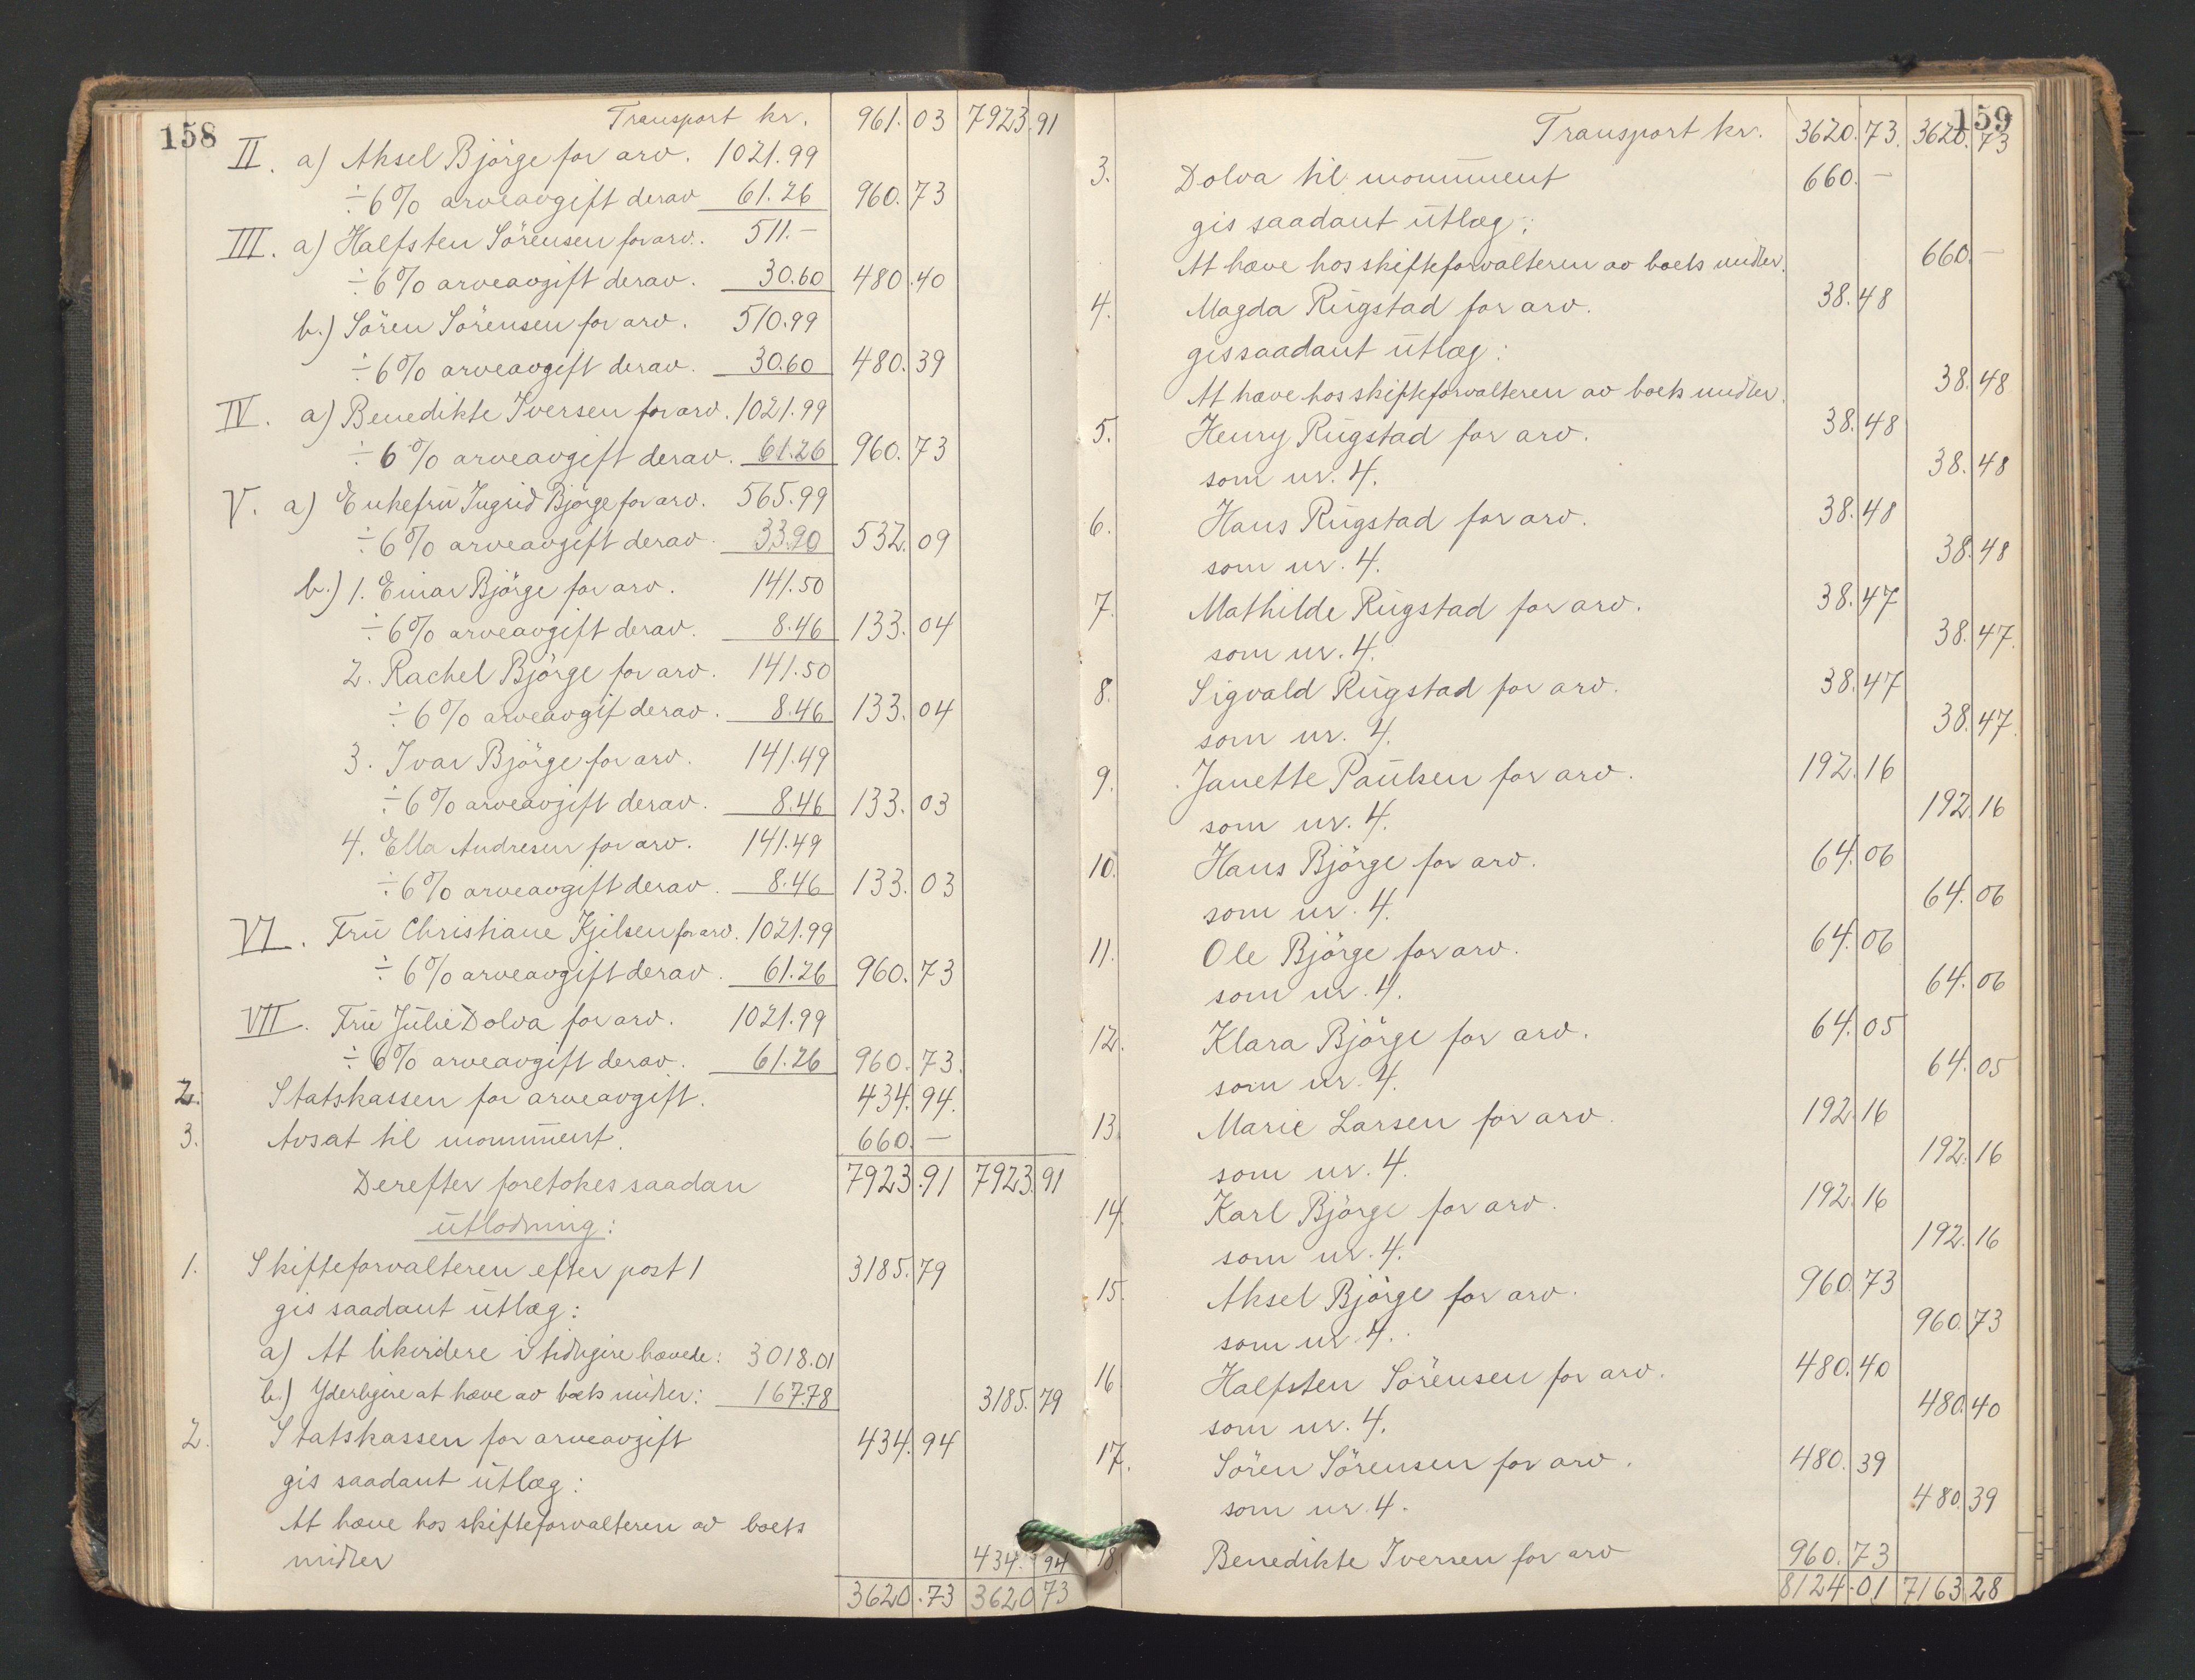 158
Transport kr. 961.03 7923.91
II. a) Aksel Björge for arv. 1021.99
÷ 6% arveavgift derav 61.26 960.73
III. a) Halfsten Sörensen for arv. 511.-
÷ 6% arveavgift derav. 30.60 480.40
b.) Sören Sörensen for arv. 510.99
÷ 6% arveavgift derav. 30.60 480.39
IV. a) Benedikte Iversen for arv. 1021.99
÷ 6% arveavgift derav. 61.26 960.73
V. a) Enkefru Ingrid Björge for arv. 565.99
÷ 6% arveavgift derav. 33.90 532.09
b.) 1. Einar Björge for arv. 141.50
÷ 6% arveavgift derav. 8.46 133.04
2. Rachel Björge for arv. 141.50
÷ 6% arveavgif derav. 8.46 133.04
3. Ivar Björge for arv. 141.49
÷ 6% arveavgift derav. 8.46 133.03
4. Ella Andresen for arv. 141.49
÷ 6% arveavgift derav. 8.46 133.03
VI. Fru Christiane Kjilsen for arv. 1021.99
÷ 6% arveavgift derav. 61.26 960.73
VII. Fru Julie Dolva for arv. 1021.99
÷ 6% arveavgift derav. 61.26 960.73.
2. Statskassen for arveavgift. 434.94.
3. Avsat til monument. 660.—
Derefter foretokes saadan 7923.91 7923.91
utlodning:
1. Skifteforvalteren efter post 1 3185.79
gis saadant utlæg:
a) At likvidere i tidligere hævede: 3018.01
b.) Yderligere at hæve av boets midler: 167.78 3185.79
2. Statskassen for arveavgift 434.94
gis saadant utlæg:
At hæve hos skifteforvalteren av boets
midler 434.94
3620.73 3620.73
159
Transport kr. 3620.73. 3620.73
3. Dolva til monument 660.—
gis saadant utlæg:
At hæve hos skifteforvalteren av boets midler. 660.—
4. Magda Rugstad for arv. 38.48
gis saadant utlæg:
At hæve hos skifteforvalteren av boets midler. 38.48
5. Henry Rugstad for arv. 38.48
som nr. 4. 38.48
6. Hans Rugstad for arv. 38.48
som nr. 4. 38.48
7. Mathilde Rugstad for arv. 38.47
som nr. 4. 38.47.
8. Sigvald Rugstad for arv. 38.47
som nr. 4. 38.47.
9. Janette Paulsen for arv. 192.16
som nr. 4. 192.16
10. Hans Björge for arv. 64.06
som nr. 4. 64.06
11. Ole Björge for arv. 64.06
som nr. 4. 64.06
12. Klara Björge for arv. 64.05
som nr. 4. 64.05
13. Marie Larsen for arv. 192.16
som nr. 4. 192.16
14. Karl Björge for arv. 192.16
som nr. 4. 192.16
15. Aksel Björge for arv. 960.73
som nr. 4. 960.73
16. Halfsten Sörensen for arv. 480.40
som nr. 4. 480.40
17. Sören Sörensen for arv. 480.39
som nr. 4. 480.39
18. Benedikte Iversen for arv 960.73
8124.01 7163.28